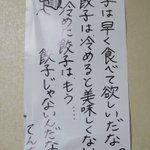 子は早く食べて欲しいだな
餃子は冷めると美味しくない
冷めた餃子は、もう…
餃子じゃないんだな
てん